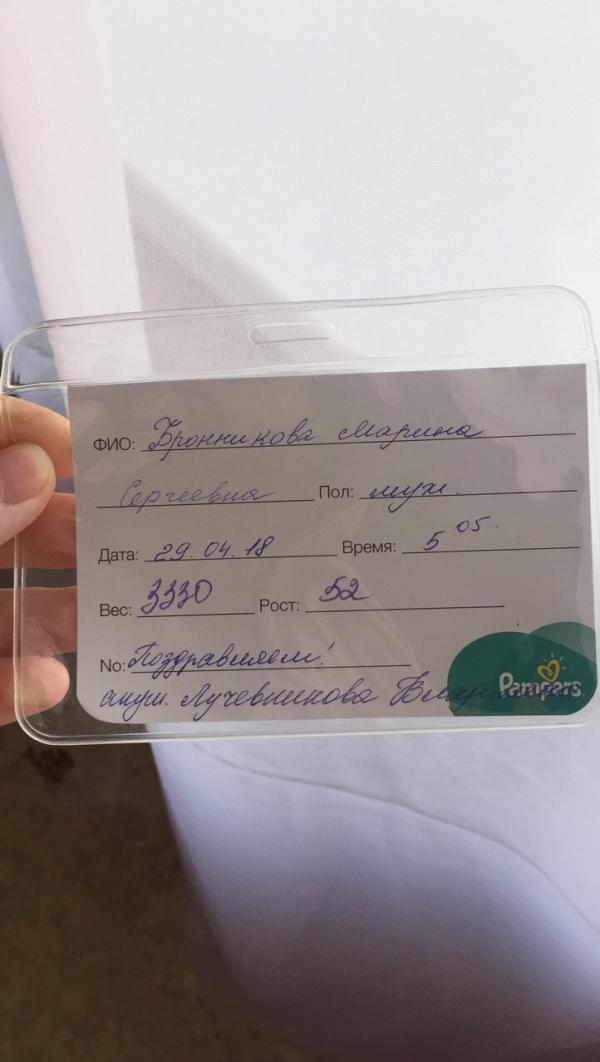 ФИО: Бронникова Марина
Сергеевна Пол: муж.
Дата: 29.04.18 Время: 5 05.
Вес: 3330 Рост: 52
No: Поздравляем!
акуш. Лучевникова
Pampers